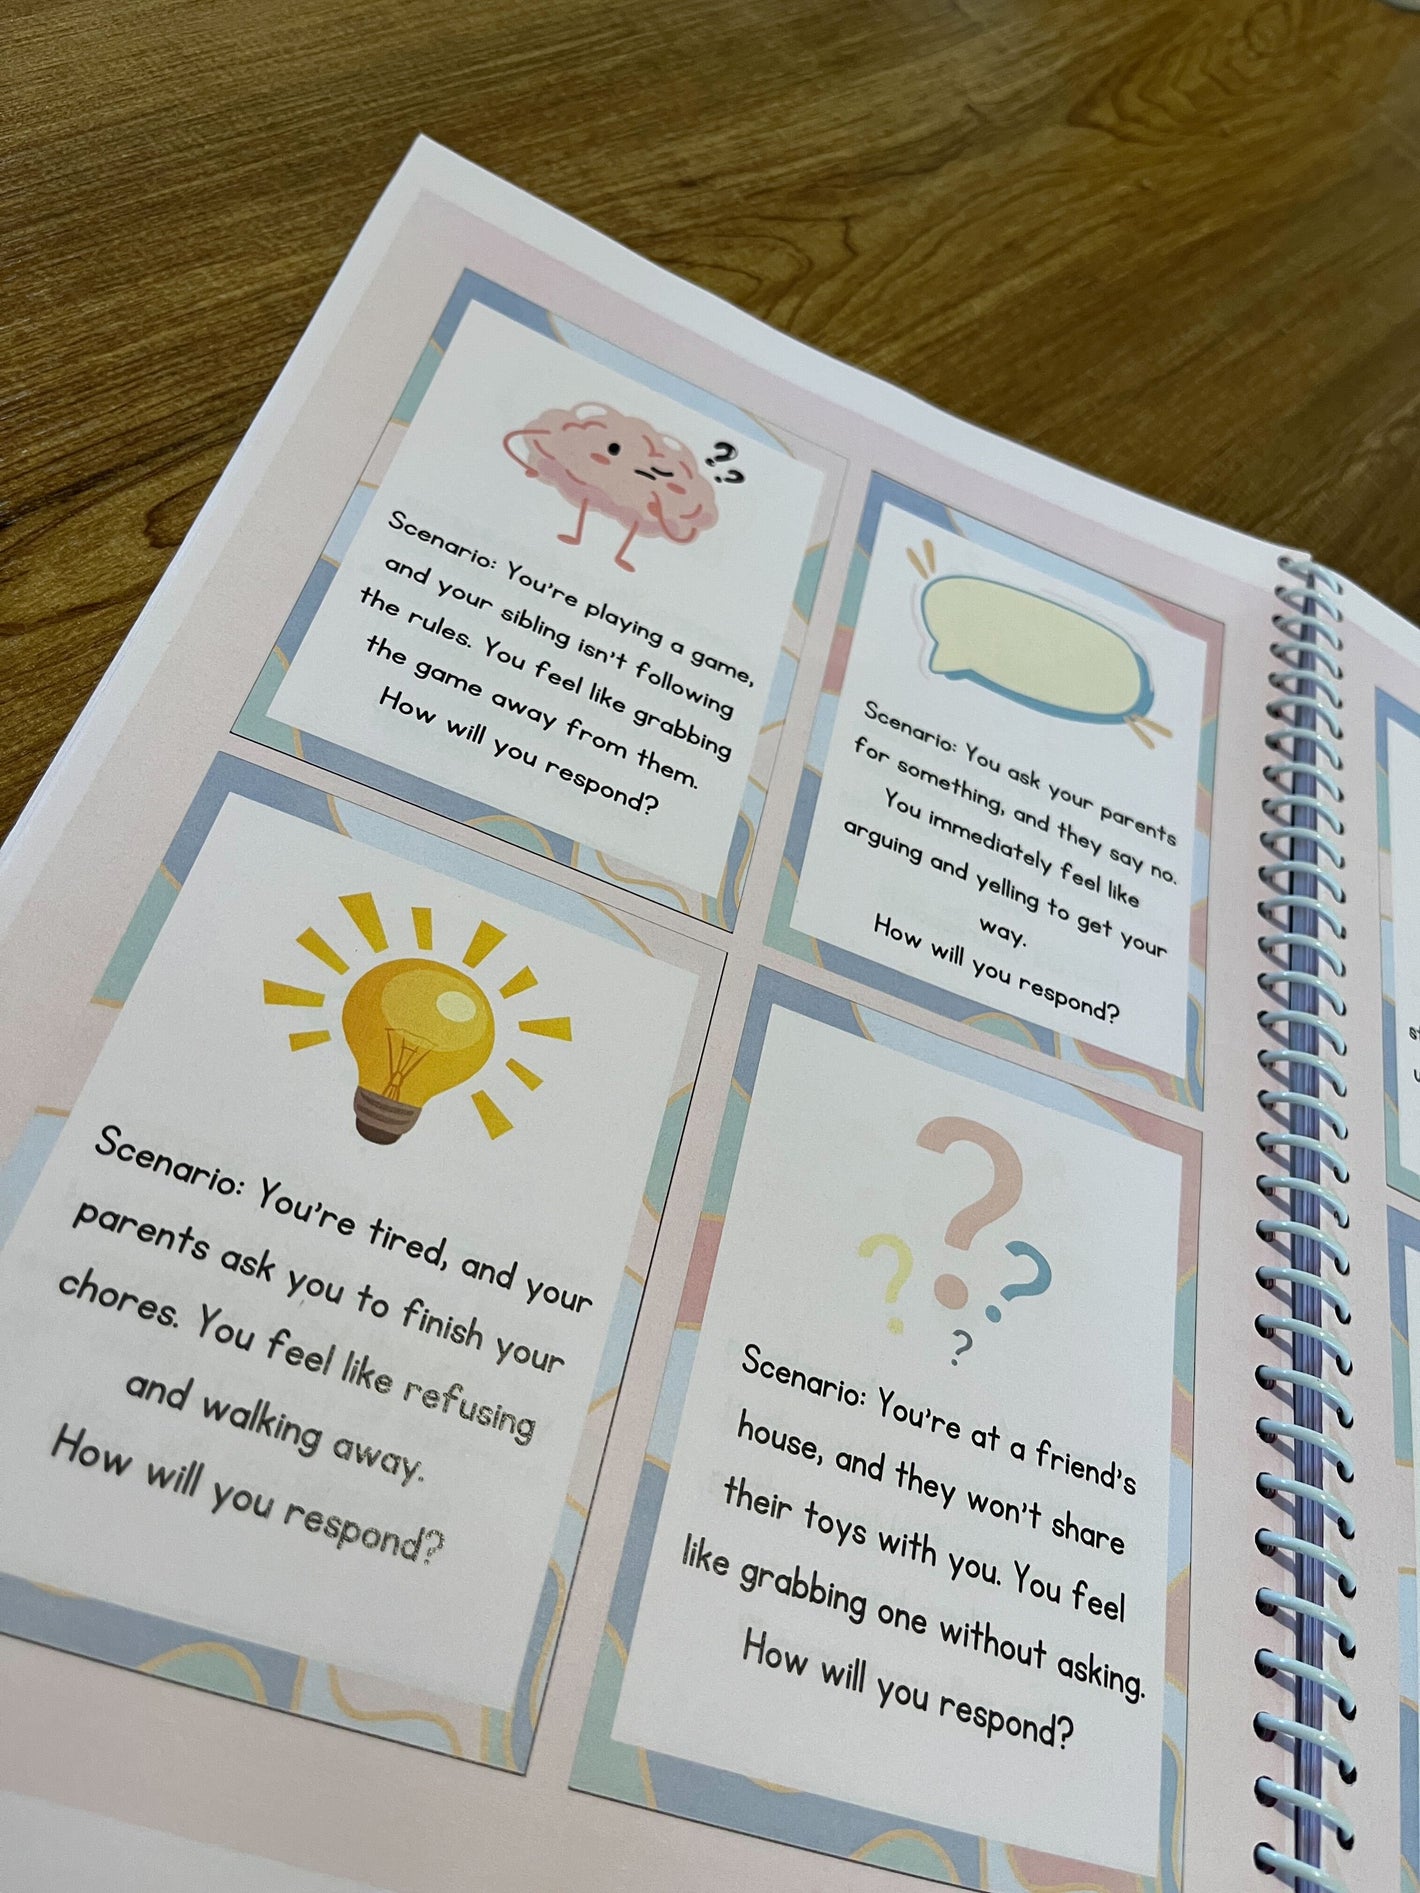 ??
Scenario: You're playing a game,
and your sibling isn't following
the rules. You feel like grabbing
the game away from them.
How will you respond?
Scenario: You ask your parents
for something, and they say no.
You immediately feel like
arguing and yelling to get your
way.
How will you respond?
Scenario: You're tired, and your
parents ask you to finish your
chores. You feel like refusing
and walking away.
How will you respond?
? ? ? ?
Scenario: You're at a friend's
house, and they won't share
their toys with you. You feel
like grabbing one without asking.
How will you respond?